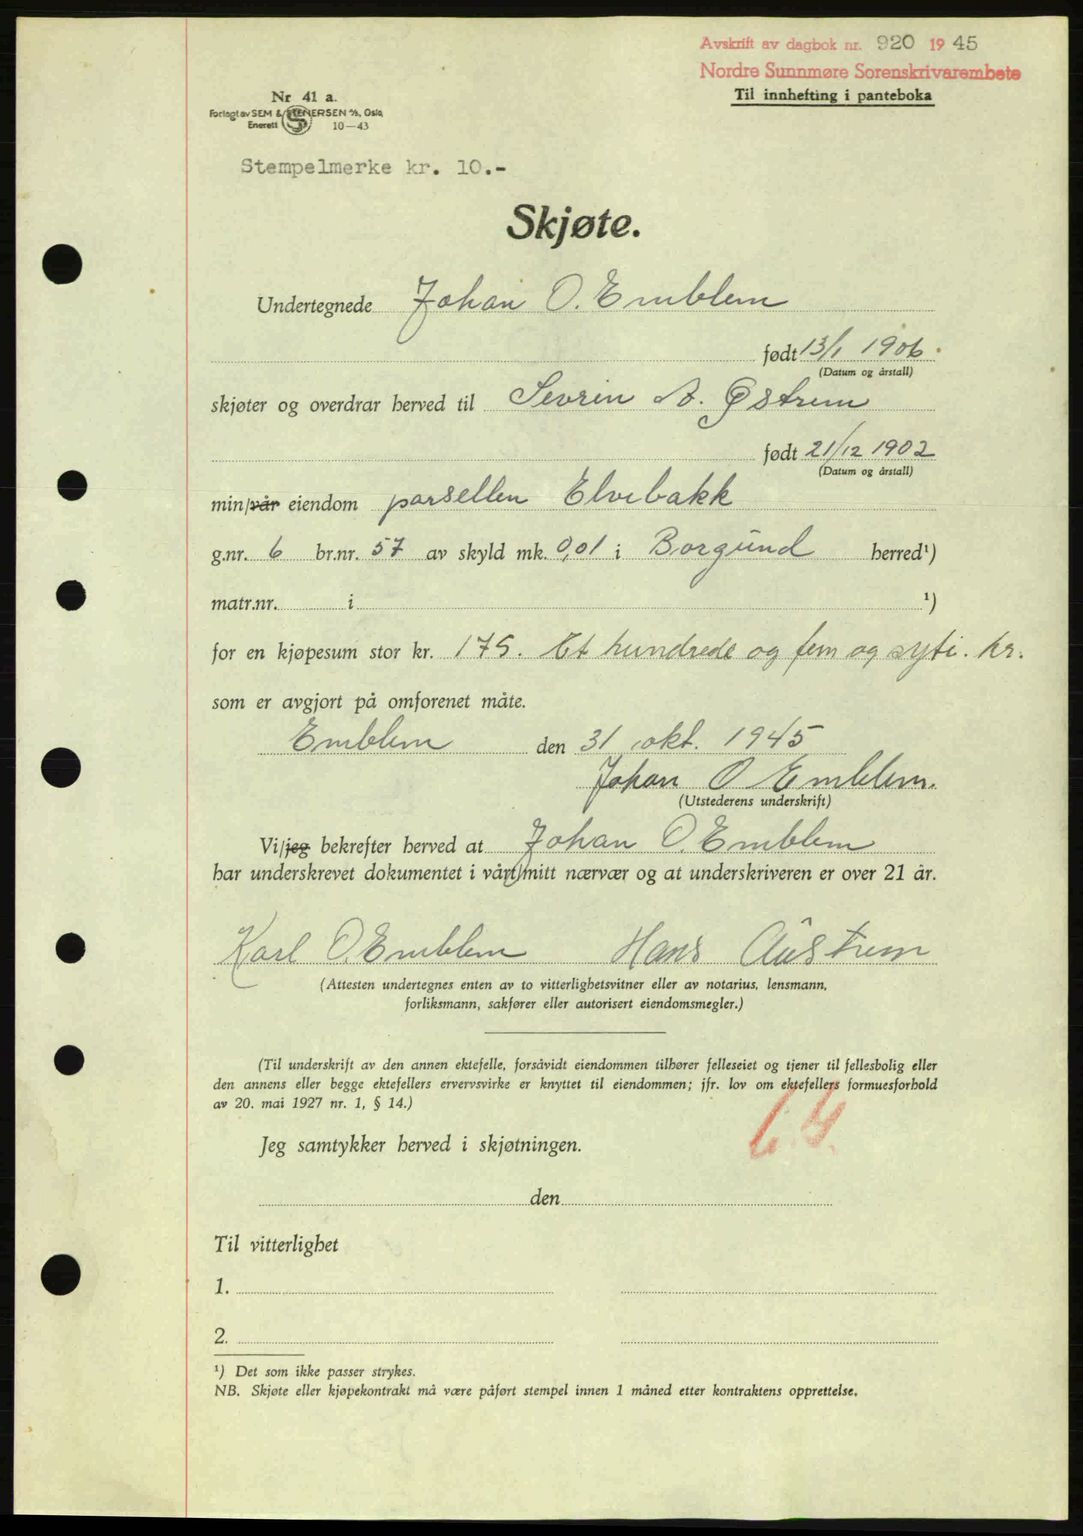 Avskrift av dagbok nr. 920 1945
Nordre Sunnmøre Sorenskrivarembete
Til innhefting i panteboka
Nr 41 a.
Forlagt av SEM & STENERSEN A/S, Oslo
Enerett 10—43
Stempelmerke kr. 10.-
Skjøte.
Undertegnede Johan O. Emblem
født 13/1 1906
(Datum og årstall)
skjøter og overdrar herved til Sevrin A. Østrem
født 21/12 1902
(Datum og årstall)
min/vår eiendom parsellen Elvebakk
g.nr. 6 br.nr. 57 av skyld mk. 0,01 i Borgund herred¹)
matr.nr. i ¹)
for en kjøpesum stor kr. 175. Et hundrede og fem og syti. kr.
som er avgjort på omforenet måte.
Emblem den 31 okt. 1945
Johan O Emblem.
(Utstederens underskrift)
Vi/jeg bekrefter herved at Johan O. Emblem
har underskrevet dokumentet i vårt/mitt nærvær og at underskriveren er over 21 år.
Karl O. Emblem Hans Austrem
(Attesten undertegnes enten av to vitterlighetsvitner eller av notarius, lensmann,
forliksmann, sakfører eller autorisert eiendomsmegler.)
(Til underskrift av den annen ektefelle, forsåvidt eiendommen tilhører felleseiet og tjener til fellesbolig eller
den annens eller begge ektefellers ervervsvirke er knyttet til eiendommen; jfr. lov om ektefellers formuesforhold
av 20. mai 1927 nr. 1, § 14.)
Jeg samtykker herved i skjøtningen.
den
Til vitterlighet
1.
2.
¹) Det som ikke passer strykes.
NB. Skjøte eller kjøpekontrakt må være påført stempel innen 1 måned etter kontraktens opprettelse.